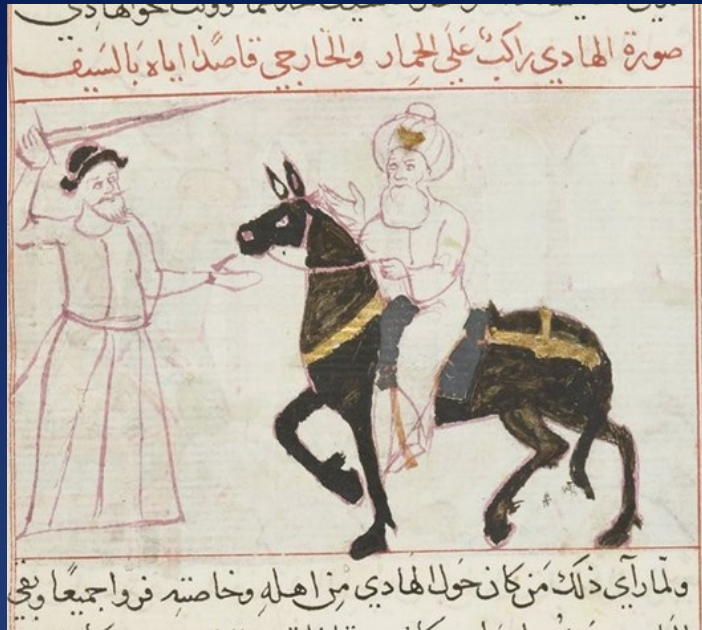 حول الهادي
صورة الهادي راكب على الحمار والخارجي قاصدًا اياه بالسيف
ولما رآي ذلك من كان حول الهادي من اهله وخاصته فروا جميعًا وبقي